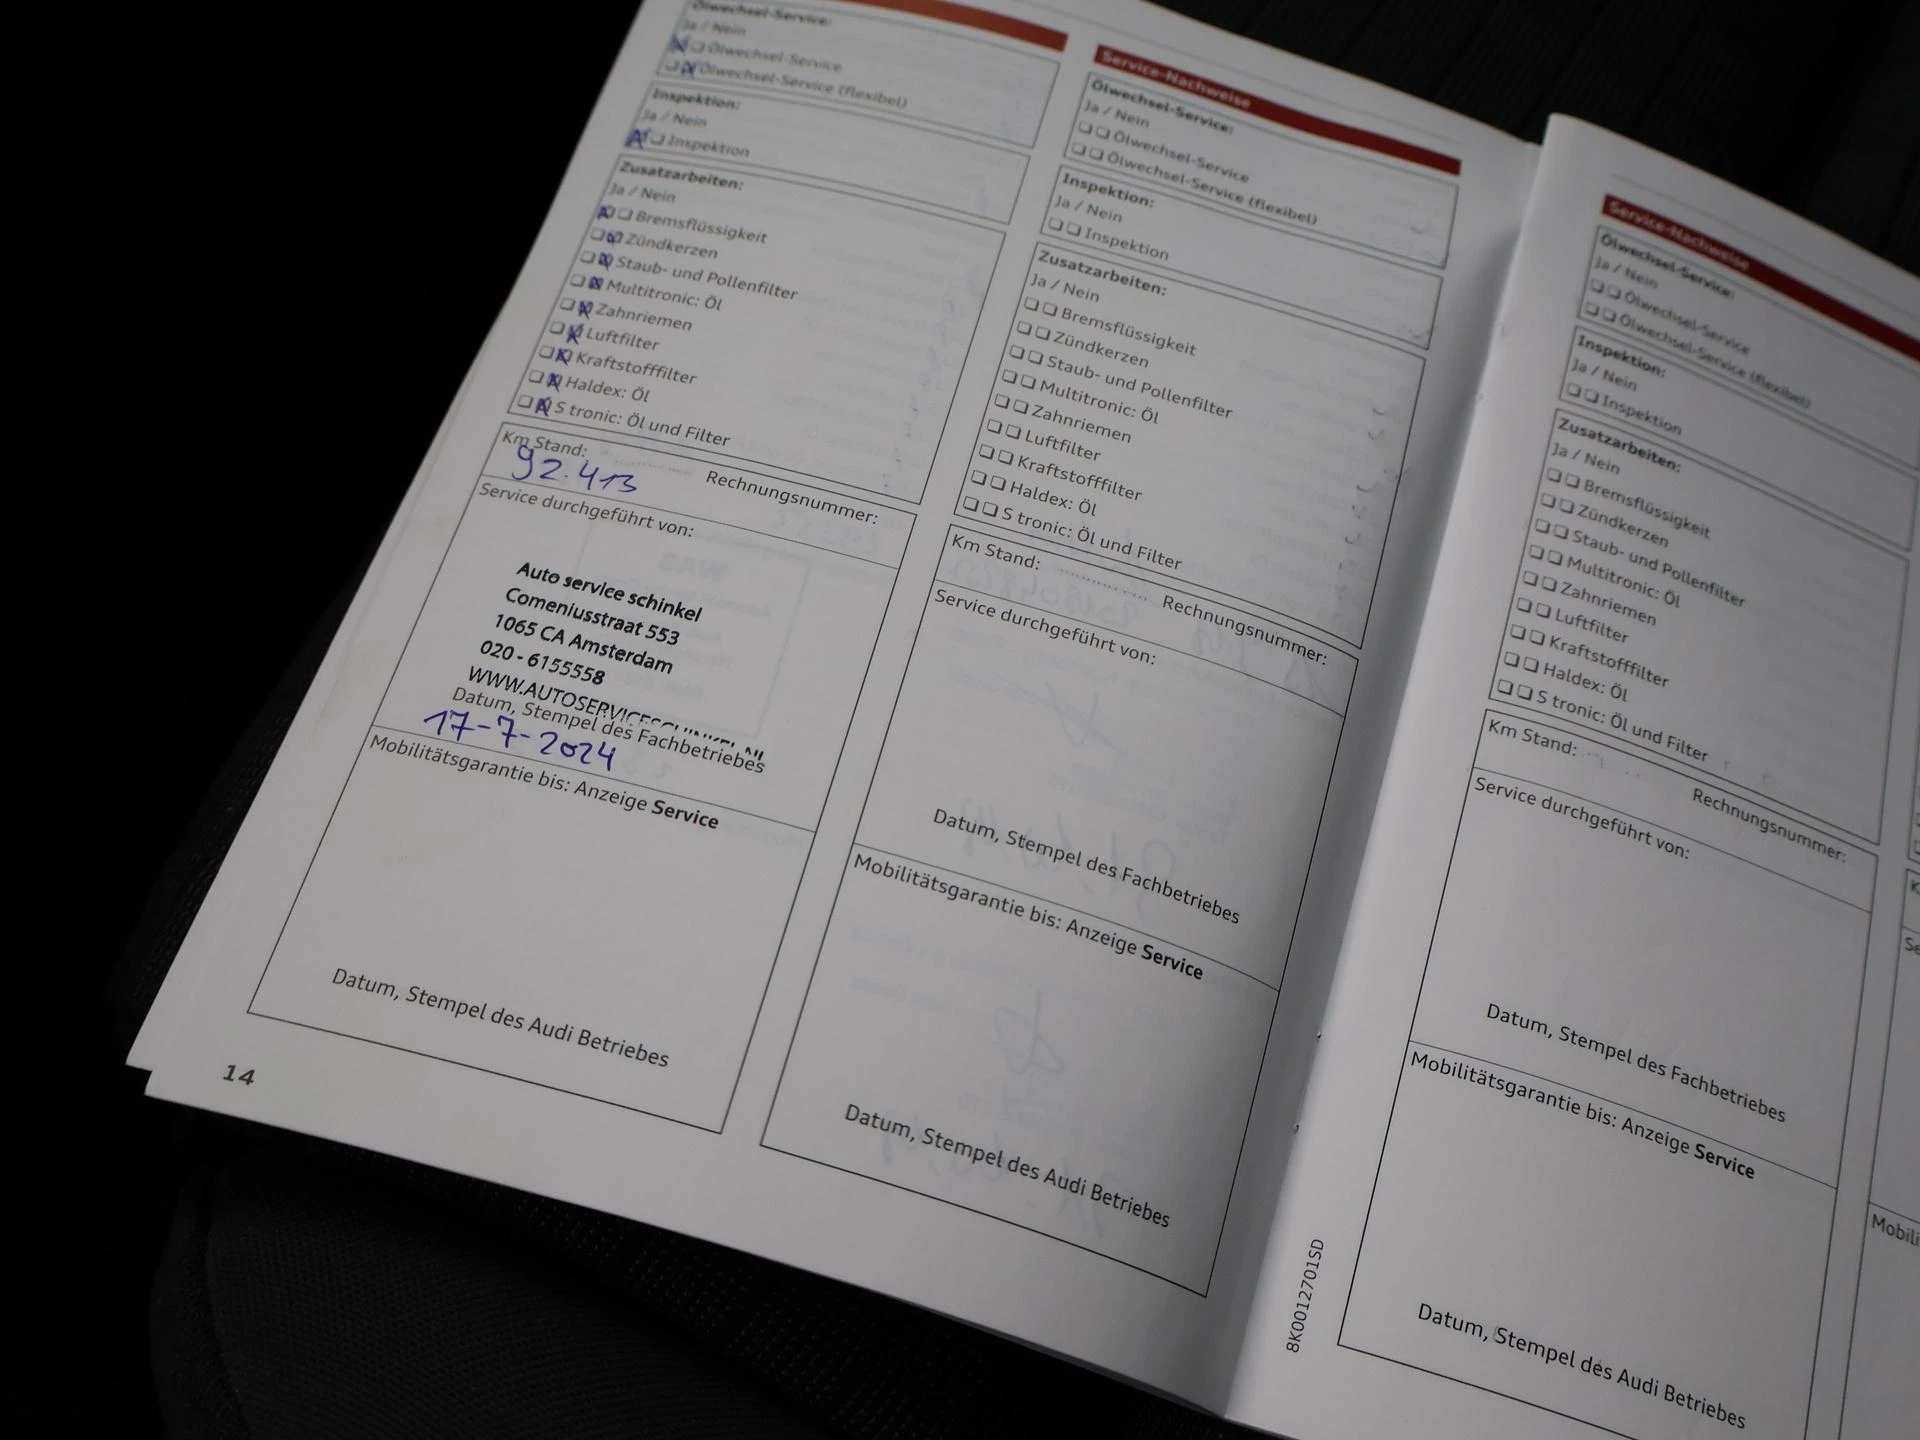 Ölwechsel-Service:
Ja / Nein
Ölwechsel-Service
Ölwechsel-Service (flexibel)
Inspektion:
Ja / Nein
Inspektion
Zusatzarbeiten:
Ja / Nein
Bremsflüssigkeit
Zündkerzen
Staub- und Pollenfilter
Multitronic: Öl
Zahnriemen
Luftfilter
Kraftstofffilter
Haldex: Öl
S tronic: Öl und Filter
Km Stand:
92.413
Rechnungsnummer:
Service durchgeführt von:
Auto service schinkel
Comeniusstraat 553
1065 CA Amsterdam
020 - 6155558
WWW.AUTOSERVICESCHINKEL.NL
Datum, Stempel des Fachbetriebes
17-7-2024
Mobilitätsgarantie bis: Anzeige Service
Datum, Stempel des Audi Betriebes
14
Service-Nachweise
Ölwechsel-Service:
Ja / Nein
Ölwechsel-Service
Ölwechsel-Service (flexibel)
Inspektion:
Ja / Nein
Inspektion
Zusatzarbeiten:
Ja / Nein
Bremsflüssigkeit
Zündkerzen
Staub- und Pollenfilter
Multitronic: Öl
Zahnriemen
Luftfilter
Kraftstofffilter
Haldex: Öl
S tronic: Öl und Filter
Km Stand:
Rechnungsnummer:
Service durchgeführt von:
Datum, Stempel des Fachbetriebes
Mobilitätsgarantie bis: Anzeige Service
Datum, Stempel des Audi Betriebes
8K0012701SD
Service-Nachweise
Ölwechsel-Service:
Ja / Nein
Ölwechsel-Service
Ölwechsel-Service (flexibel)
Inspektion:
Ja / Nein
Inspektion
Zusatzarbeiten:
Ja / Nein
Bremsflüssigkeit
Zündkerzen
Staub- und Pollenfilter
Multitronic: Öl
Zahnriemen
Luftfilter
Kraftstofffilter
Haldex: Öl
S tronic: Öl und Filter
Km Stand:
Rechnungsnummer:
Service durchgeführt von:
Datum, Stempel des Fachbetriebes
Mobilitätsgarantie bis: Anzeige Service
Datum, Stempel des Audi Betriebes